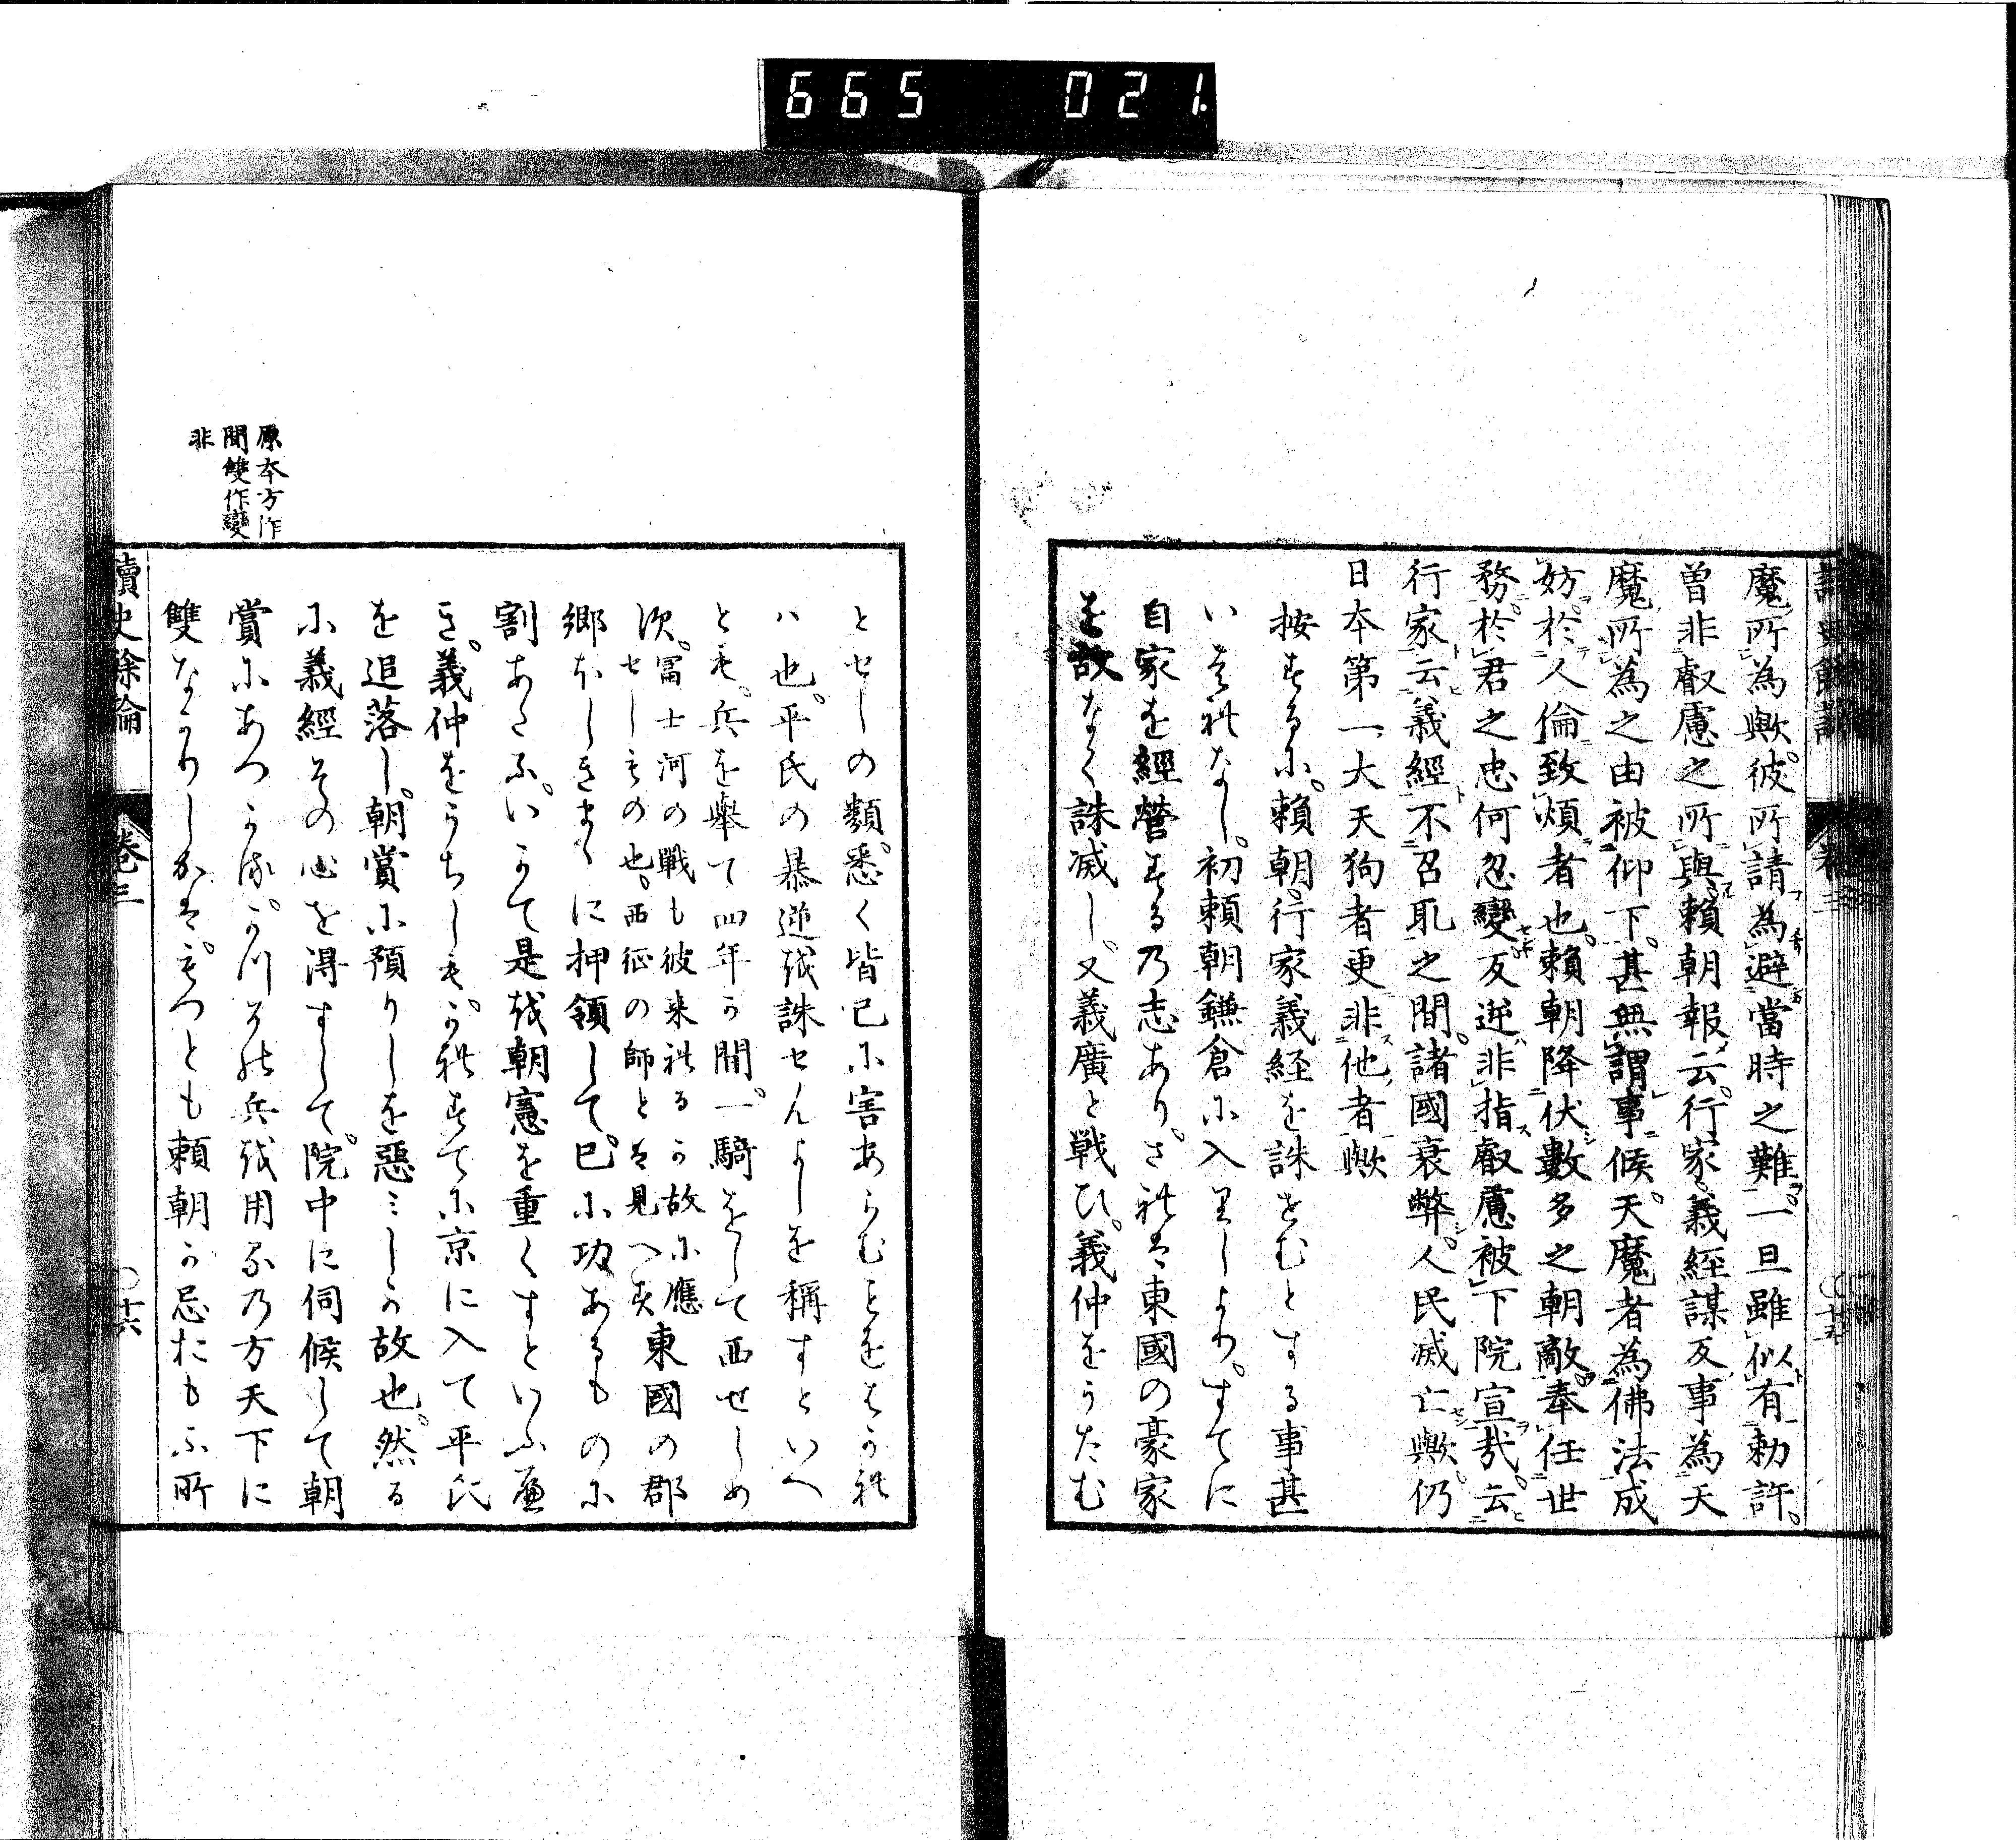 665 021.
魔所為歟。彼所請為避當時之難。一旦雖似有勅許。
曽非叡慮之所與。賴朝報云。行家義經謀反事為天
魔所為之由被仰下。甚無謂事候。天魔者為佛法成
妨。於人倫致煩者也。賴朝降伏數多之朝敵。奉任世
務。於君之忠何忽變反逆。非指叡慮被下院宣哉。云
行家云義經不召取之間。諸國衰弊。人民滅亡歟。仍
日本第一大天狗者更非他者歟
按するに。賴朝。行家義経を誅せむとする事甚
いはれなし。初賴朝鎌倉に入りしより。すてに
自家を經營するの志あり。されは東國の豪家
を故なく誅滅し。又義廣と戰ひ。義仲をうたむ
とせしの類。悉く皆已に害あらむことをはかれ
ハ也。平氏の暴逆を誅せんよしを稱すといへ
とも。兵を舉て四年か間。一騎をして西せしめ
す。冨士河の戰も彼来れるか故に應
せしもの也。西征の師とは見へす
東國の郡
郷ほしきまゝに押領して。已に功あるものに
割あたふ。いかて是を朝憲を重くすといふへ
き。義仲をうちしも。かれすてに京に入て平氏
を追落し。朝賞に預りしを惡ミしか故也。然る
に義經その心を得すして。院中に伺候して朝
賞にあつかる。かつその兵を用るの方天下に
雙なかりしかは。もつとも賴朝か忌おもふ所
原本方作
間雙作變
非
讀史餘論
卷三
〇十六